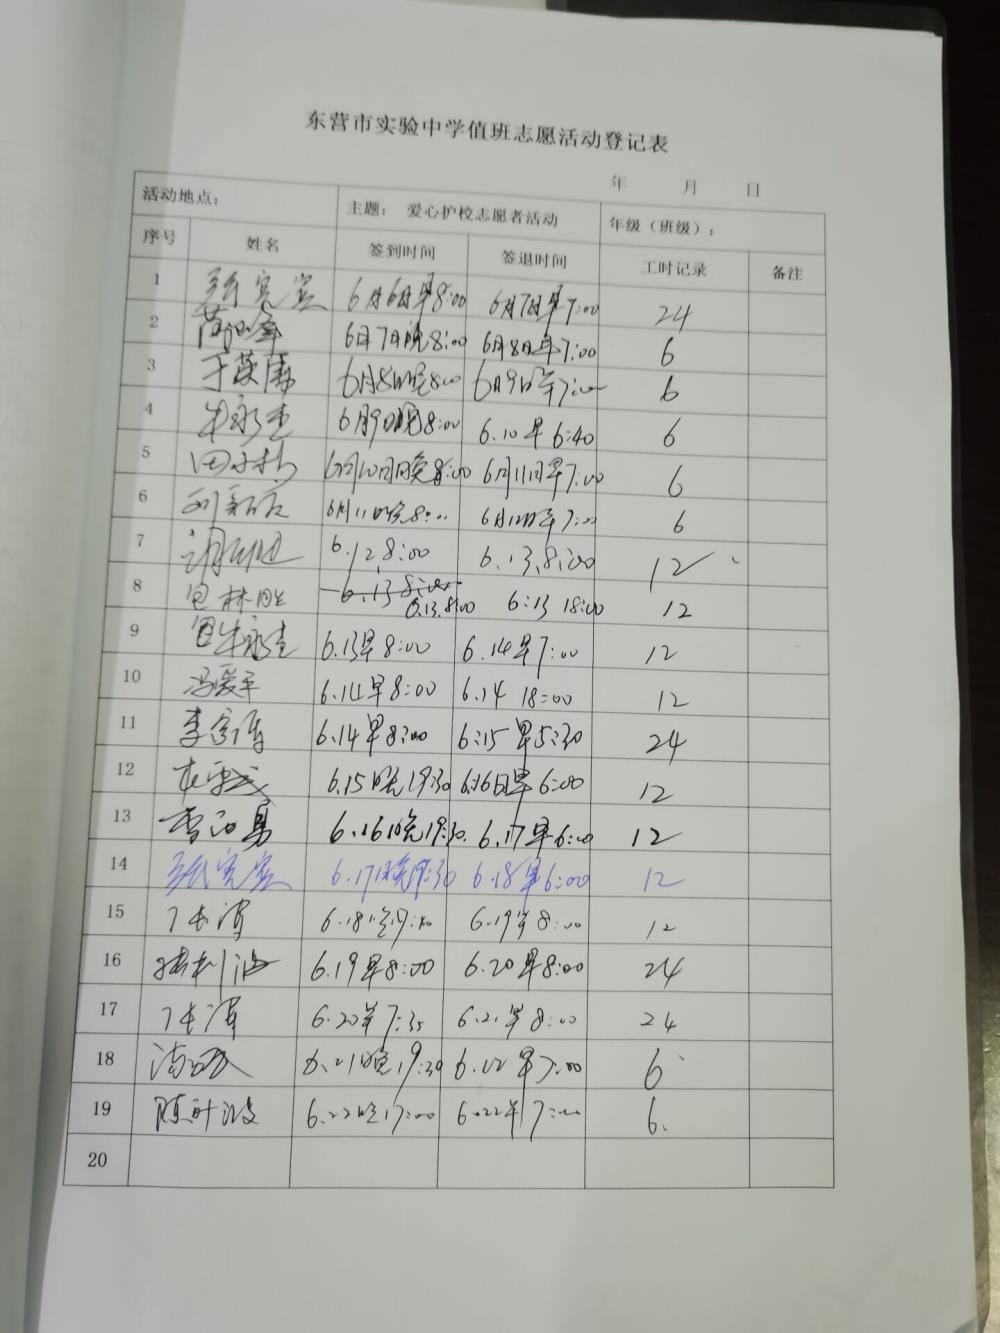 东营市实验中学值班志愿活动登记表
年 月 日
活动地点： 主题： 爱心护校志愿者活动 年级（班级）：
序号 姓名 签到时间 签退时间 工时记录 备注
1 6月6日早8:00 6月7日早7:00 24
2 6月7日晚8:00 6月8日早7:00 6
3 6月8日晚8:00 6月9日早7:00 6
4 牛永吉 6月9日晚8:00 6.10早6:40 6
5 6月10日晚8:00 6月11日早7:00 6
6 6月11日晚8:00 6月12日早7:00 6
7 6.12 8:00 6.13.8:00 12
8 6.13 8:00 6.13.8:00 6:13 18:00 12
9 牛永吉 6.13早8:00 6.14早7:00 12
10 冯爱平 6.14早8:00 6.14 18:00 12
11 6.14早8:00 6:15早5:30 24
12 6.15晚19:30 6月16日早6:00 12
13 6.16晚19:30 6.17早6:00 12
14 6.17晚19:30 6.18早6:00 12
15 6.18 6.19早8:00 12
16 6.19早8:00 6.20早8:00 24
17 6.20早7:35 6.21早8:00 24
18 6.21晚19:30 6.22早7:00 6
19 6.22晚17:00 6.22早7:00 6.
20